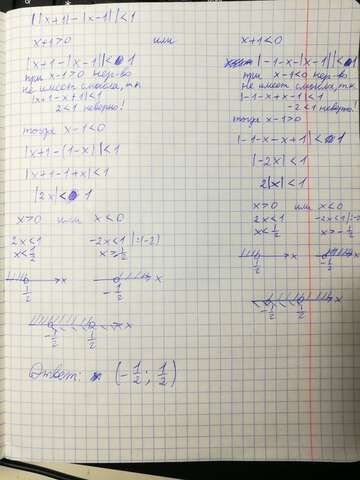 ||x+1|-|x-1||<1
x+1>0 или x+1<0
|x+1-|x-1||<1
при x-1>0 нер-во
не имеет смысла, т.к
|x+1-x+1|<1
2<1 неверно!
тогда x-1<0
|x+1-(1-x)|<1
|x+1-1+x|<1
|2x|<1
x>0 или x<0
2x<1 -2x<1 |:(-2)
x<1/2 x>-1/2
1/2 x -1/2 x
-1/2 1/2 x
|-1-x-|x-1||<1
при x-1<0 нер-во
не имеет смысла, т.к
|-1-x+x-1|<1
-2<1 неверно!
тогда x-1>0
|-1-x-x+1|<1
|-2x|<1
2|x|<1
x>0 или x<0
2x<1 -2x<1 |:(-2)
x<1/2 x>-1/2
1/2 x -1/2 x
-1/2 1/2 x
Ответ: (-1/2; 1/2)